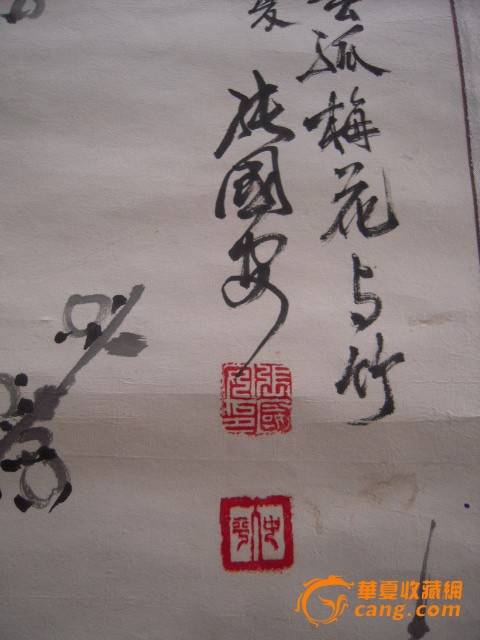 孤梅花与竹
張國安
張國安印
華夏收藏網
cang.com